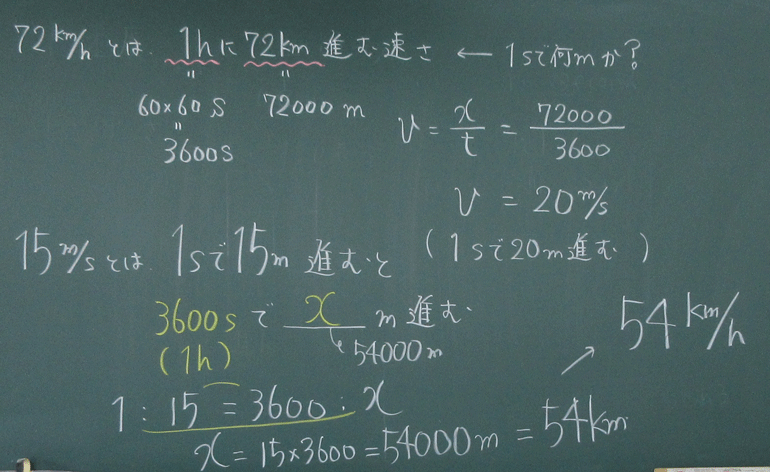 72km/hとは 1hに72km進む速さ ← 1sで何mか?
60×60s 72000m
3600s
v = x/t = 72000/3600
v = 20m/s
(1sで20m進む)
15m/sとは 1sで15m進むと
3600sで x m進む
(1h) 54000m
54km/h
1:15=3600:x
x=15×3600=54000m=54km